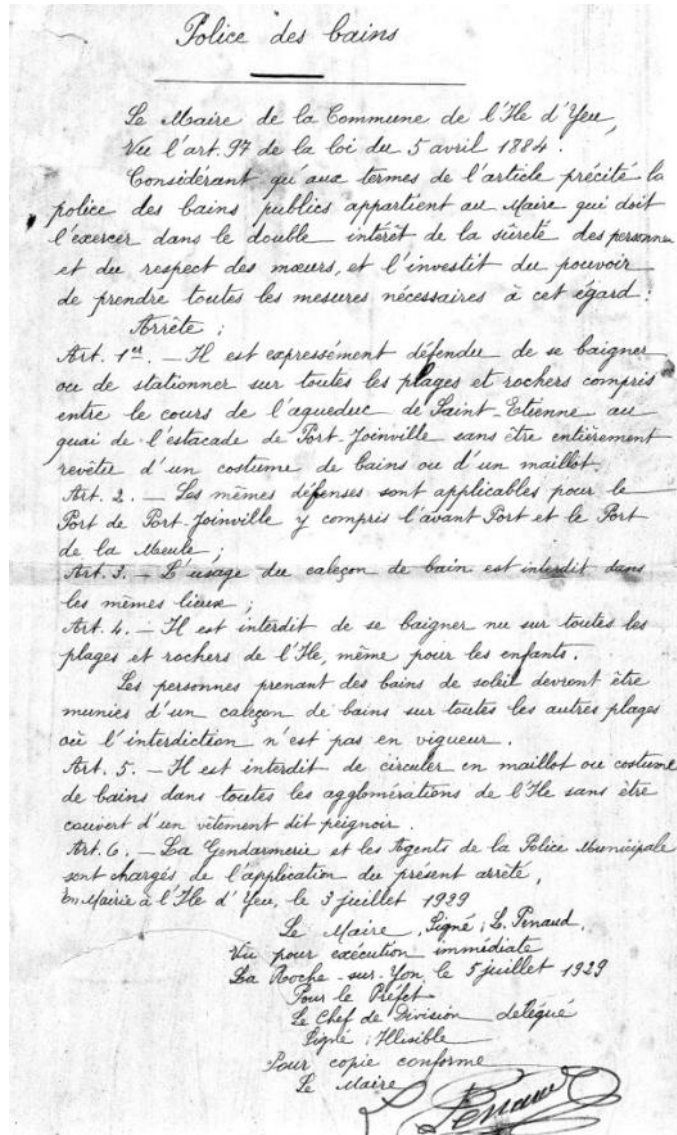 Police des bains
Le Maire de la Commune de l'Ile d'Yeu,
Vu l'art. 97 de la loi du 5 avril 1884.
Considérant qu'aux termes de l'article précité la
police des bains publics appartient au Maire qui doit
l'exercer dans le double intérêt de la sûreté des personnes
et du respect des mœurs, et l'investit du pouvoir
de prendre toutes les mesures nécessaires à cet égard :
Arrête :
Art. 1er. — Il est expressément défendu de se baigner
ou de stationner sur toutes les plages et rochers compris
entre le cours de l'aqueduc de Saint-Etienne au
quai de l'estacade de Port-Joinville sans être entièrement
revêtu d'un costume de bains ou d'un maillot.
Art. 2. — Les mêmes défenses sont applicables pour le
Port de Port-Joinville y compris l'avant Port et le Port
de la Meule ;
Art. 3. — L'usage du caleçon de bain est interdit dans
les mêmes lieux ;
Art. 4. — Il est interdit de se baigner nu sur toutes les
plages et rochers de l'Ile, même pour les enfants.
Les personnes prenant des bains de soleil devront être
munies d'un caleçon de bains sur toutes les autres plages
où l'interdiction n'est pas en vigueur.
Art. 5. — Il est interdit de circuler en maillot ou costume
de bains dans toutes les agglomérations de l'Ile sans être
couvert d'un vêtement dit peignoir.
Art. 6. — La Gendarmerie et les Agents de la Police Municipale
sont chargés de l'application du présent arrêté,
En Mairie à l'Ile d'Yeu, le 3 juillet 1929
Le Maire, Signé : L. Penaud.
Vu pour exécution immédiate
La Roche-sur-Yon le 5 juillet 1929
Pour le Préfet
Le Chef de Division délégué
Signé : Illisible
Pour copie conforme
Le Maire
Penaud